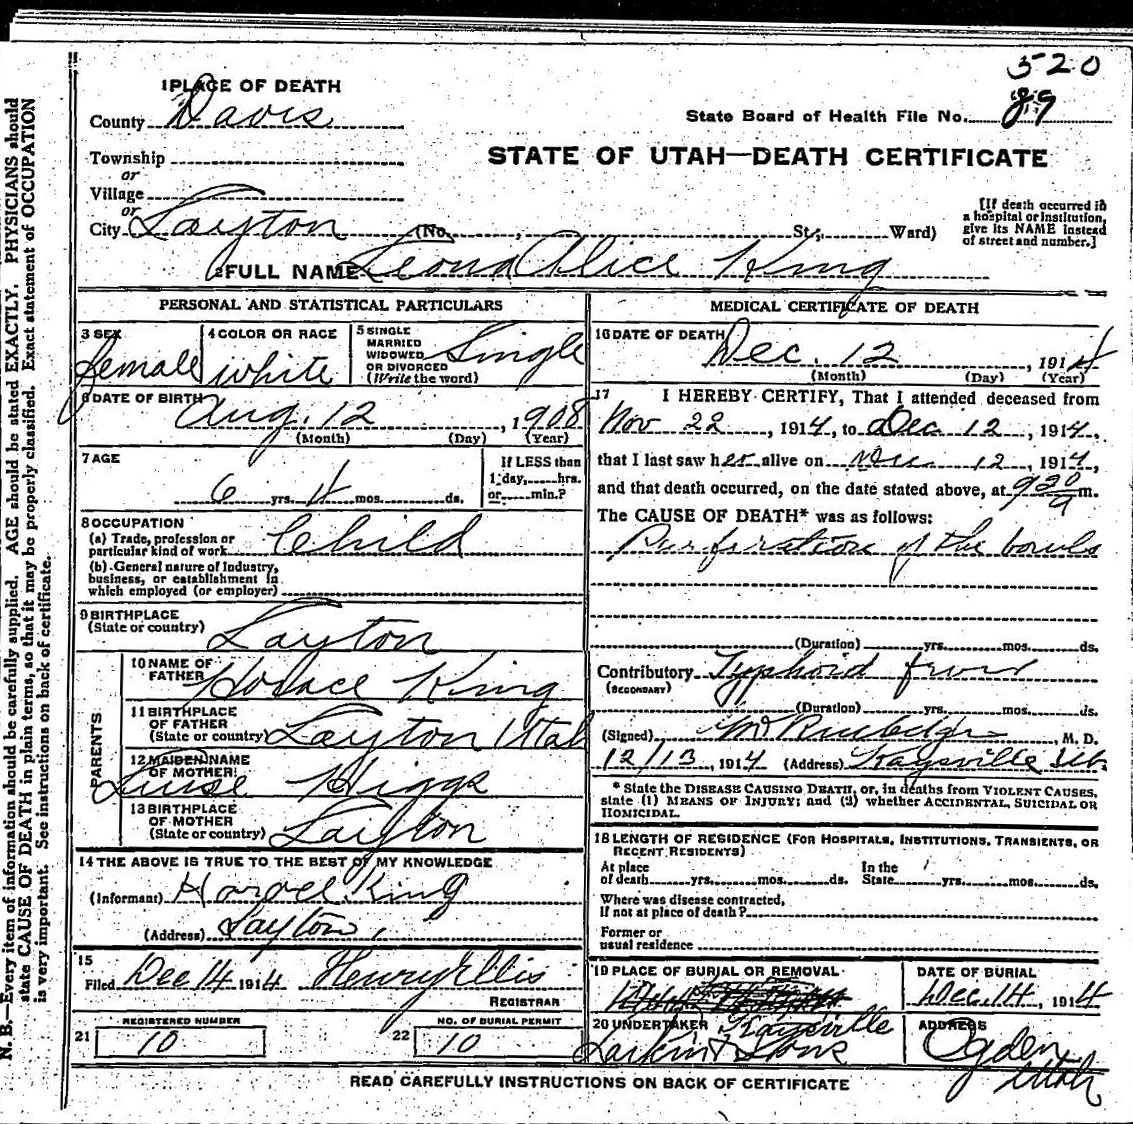 520
1 PLACE OF DEATH
County Davis
State Board of Health File No. 89
Township
or
Village
or
City Layton (No. , St., Ward)
STATE OF UTAH—DEATH CERTIFICATE
[If death occurred in
a hospital or institution,
give its NAME instead
of street and number.]
2 FULL NAME Leona Alice King
PERSONAL AND STATISTICAL PARTICULARS
3 SEX female
4 COLOR OR RACE white
5 SINGLE
MARRIED
WIDOWED
OR DIVORCED
(Write the word) Single
6 DATE OF BIRTH Aug. 12, 1908
(Month) (Day) (Year)
7 AGE
6 yrs. 4 mos. ds.
If LESS than
1 day, hrs.
or min.?
8 OCCUPATION
(a) Trade, profession or
particular kind of work Child
(b) General nature of Industry,
business, or establishment in
which employed (or employer)
9 BIRTHPLACE
(State or country) Layton
PARENTS
10 NAME OF
FATHER Horace King
11 BIRTHPLACE
OF FATHER
(State or country) Layton Utah
12 MAIDEN NAME
OF MOTHER Higgs
13 BIRTHPLACE
OF MOTHER
(State or country) Layton
14 THE ABOVE IS TRUE TO THE BEST OF MY KNOWLEDGE
(Informant) King
(Address) Layton,
15
Filed Dec 14 1914 Henry Ellis
REGISTRAR
21 REGISTERED NUMBER
10
22 NO. OF BURIAL PERMIT
10
MEDICAL CERTIFICATE OF DEATH
16 DATE OF DEATH Dec. 12, 1914
(Month) (Day) (Year)
17 I HEREBY CERTIFY, That I attended deceased from
Nov 22, 1914, to Dec 12, 1914,
that I last saw her alive on Dec 12, 1914,
and that death occurred, on the date stated above, at 9 30 a m.
The CAUSE OF DEATH* was as follows:
Purforation of the bowls
(Duration) yrs. mos. ds.
Contributory Typhoid fever
(SECONDARY)
(Duration) yrs. mos. ds.
(Signed) M. D.
12/13, 1914 (Address) Kaysville
* State the DISEASE CAUSING DEATH, or, in deaths from VIOLENT CAUSES,
state (1) MEANS OF INJURY; and (2) whether ACCIDENTAL, SUICIDAL OR
HOMICIDAL.
18 LENGTH OF RESIDENCE (FOR HOSPITALS, INSTITUTIONS, TRANSIENTS, OR
RECENT RESIDENTS)
At place
of death yrs. mos. ds.
In the
State yrs. mos. ds.
Where was disease contracted,
if not at place of death?
Former or
usual residence
19 PLACE OF BURIAL OR REMOVAL
Kaysville
DATE OF BURIAL
Dec. 14, 1914
20 UNDERTAKER
Larkin & Sons
ADDRESS
Ogden
Utah
READ CAREFULLY INSTRUCTIONS ON BACK OF CERTIFICATE
N. B.—Every item of information should be carefully supplied. AGE should be stated EXACTLY. PHYSICIANS should
state CAUSE OF DEATH in plain terms, so that it may be properly classified. Exact statement of OCCUPATION
is very important. See instructions on back of certificate.